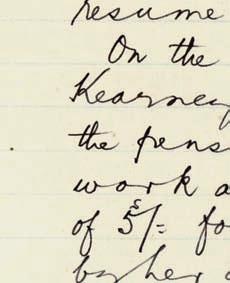 resume
On the
Kearney
the pens
work a
of 5/- fo
by her